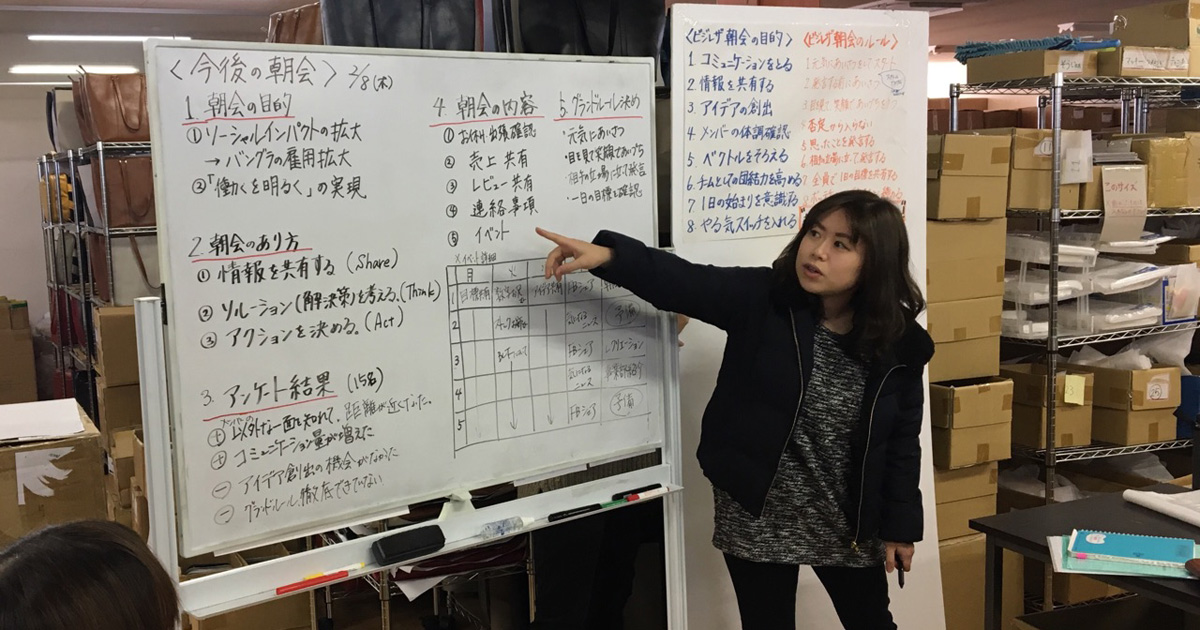 〈今後の朝会〉 2/8(木)
1. 朝会の目的
① ソーシャルインパクトの拡大
→ バングラの雇用拡大
②「働くを明るく」の実現
2. 朝会のあり方
① 情報を共有する (Share)
② ソリューション(解決策)を考える。(Think)
③ アクションを決める。(Act)
3. アンケート結果 (15名)
⊕ 以外な一面を知れて、距離が近くなった。
⊕ コミュニケーション量が増えた
⊖ アイデア創出の機会がなかった
⊖ グランドルール徹底できていない
4. 朝会の内容
① お休み、出張確認
② 売上共有
③ レビュー共有
④ 連絡事項
⑤ イベント
※イベント詳細
月 火
1
2
3
4
5
FBシェア
気になるニュース
レクリエーション
FBシェア
気になるニュース
予備
FBシェア
5. グランドルール決め
・元気にあいさつ
・目を見て笑顔であいづち
・相手の立場に立って発言
・一日の目標を確認
〈ビジレザ朝会の目的〉
1. コミュニケーションをとる
2. 情報を共有する
3. アイデアの創出
4. メンバーの体調確認
5. ベクトルをそろえる
6. チームとしての団結力を高める
7. 1日の始まりを意識する
8. やる気スイッチを入れる
〈ビジレザ朝会のルール〉
1. 元気にあいさつ
4. 否定から入らない
5. 思ったことを発言する
6. 相手の立場に立って発言する
7. 全員で1日の目標を共有する
このサイズ